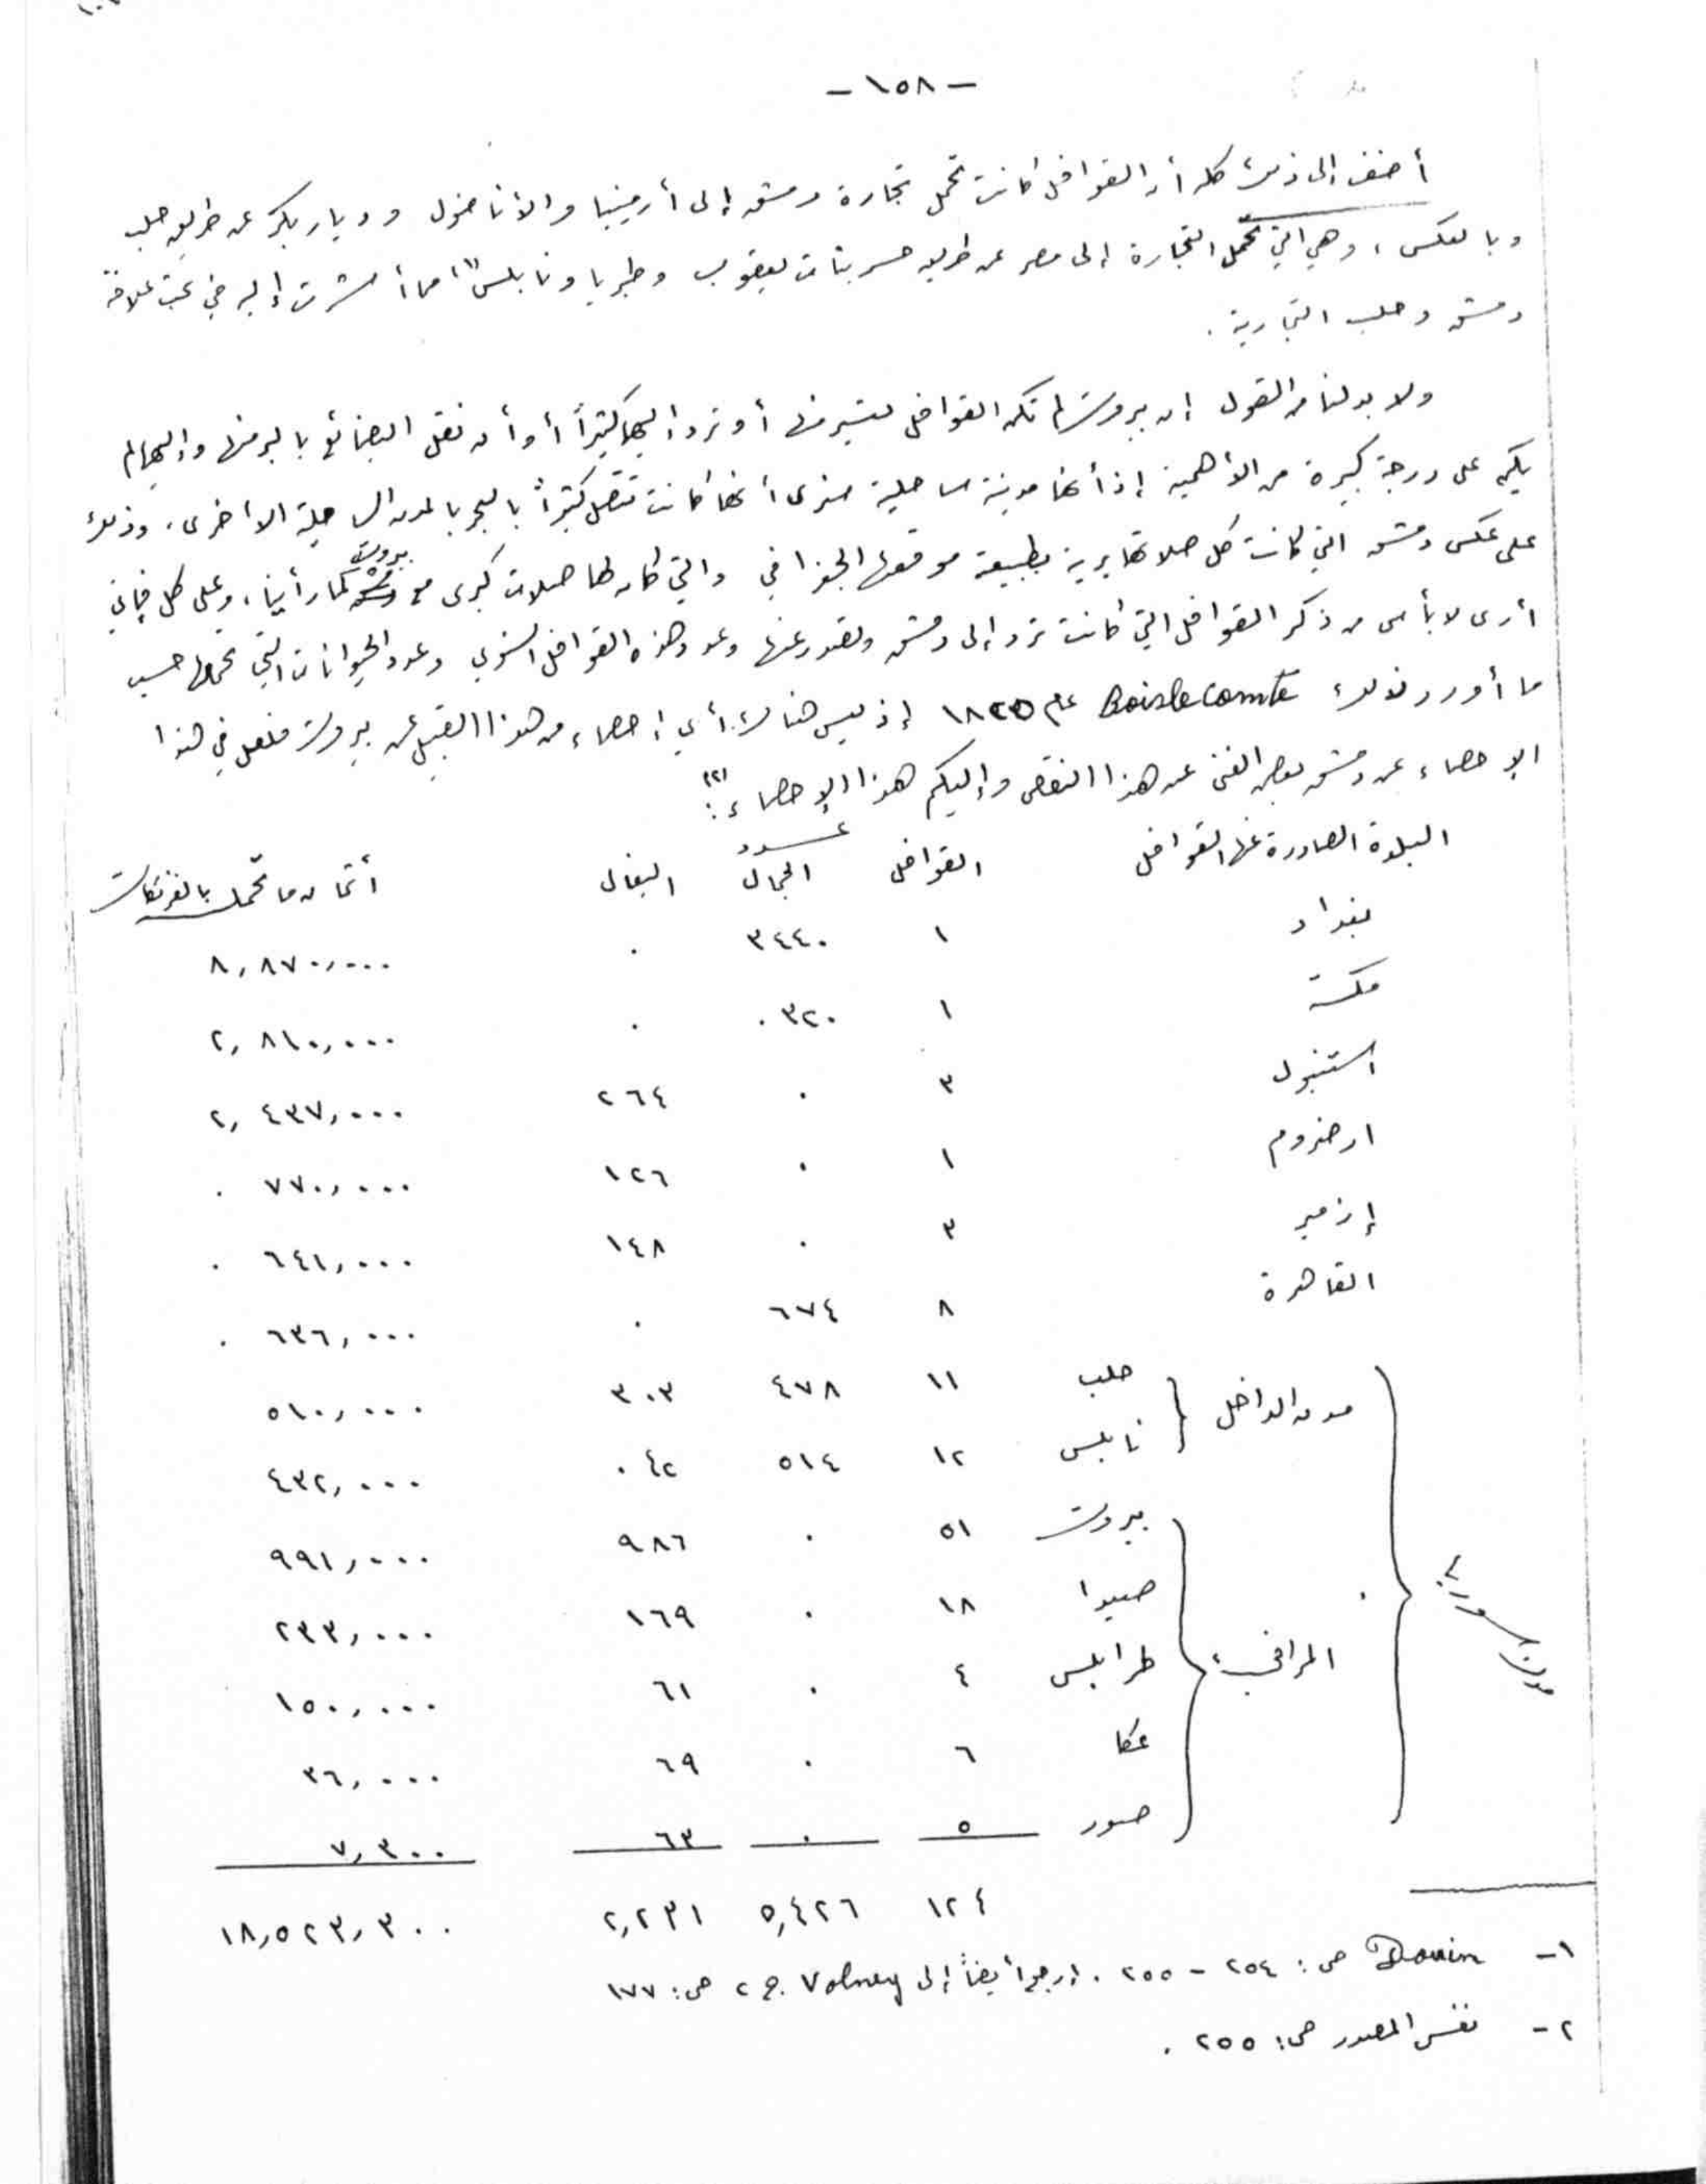 -١٥٨-
أضف إلى ذلك كله أن القوافل كانت تحمل تجارة دمشق إلى أرمينيا والأناضول وديار بكر عن طريق حلب
وبالعكس، وهي التي تحمل التجارة إلى مصر عن طريق جسر بنات يعقوب وطبريا ونابلس(١) مما أشرت إليه في بحث علاقة
دمشق وحلب التجارية.
ولا بد لنا من القول إن بيروت لم تكن القوافل تسير منها أو ترد إليها كثيراً أو أن نقل البضائع بالبر منها وإليها لم
يكن على درجة كبيرة من الأهمية إذ أنها مدينة ساحلية سنرى أنها كانت تتصل كثيراً بالبحر بالمدن الساحلية الأخرى، وذلك
على عكس دمشق التي كانت كل صلاتها برية بطبيعة موقعها الجغرافي والتي كان لها صلات كبرى مع بيروت كما رأينا، وعلى كل فإني
أرى لا بأس من ذكر القوافل التي كانت ترد إلى دمشق وتصدر عنها وعدد هذه القوافل السنوي وعدد الحيوانات التي تحملها حسب
ما أورد ذلك Boislecomte عام ١٨٣٥ إذ ليس هناك أي إحصاء من هذا القبيل عن بيروت فلعل في هذا
الإحصاء عن دمشق بعض الغنى عن هذا النقص وإليكم هذا الإحصاء(٢):
عدد
البلدة الصادرة عنها القوافل القوافل الجمال البغال أثمان ما تحمله بالفرنكات
بغداد ١ ٣٤٤٠ ٠ ٨,٨٧٠,٠٠٠
مكة ١ ٠٣٢٠ ٠ ٢,٨١٠,٠٠٠
استنبول ٣ ٠ ٢٦٤ ٢,٤٣٧,٠٠٠
ارضروم ١ ٠ ١٢٦ ٠ ٧٧٠,٠٠٠
إزمير ٣ ٠ ١٤٨ ٠ ٦٤١,٠٠٠
القاهرة ٨ ٦٧٤ ٠ ٠ ٦٣٦,٠٠٠
مدن سورية
مدن الداخل
حلب ١١ ٤٧٨ ٣٠٣ ٥١٠,٠٠٠
نابلس ١٢ ٥١٤ ٠٤٢ ٤٣٢,٠٠٠
المرافىء
بيروت ٥١ ٠ ٩٨٦ ٩٩١,٠٠٠
صيدا ١٨ ٠ ١٦٩ ٢٣٣,٠٠٠
طرابلس ٤ ٠ ٦١ ١٥٠,٠٠٠
عكا ٦ ٠ ٦٩ ٣٦,٠٠٠
صور ٥ ٠ ٦٣ ٧,٣٠٠
١٢٤ ٥,٤٢٦ ٢,٢٣١ ١٨,٥٢٣,٣٠٠
١- Douin ص: ٢٥٤ - ٢٥٥. ارجع أيضاً إلى Volney ج ٢ ص: ١٧٧
٢- نفس المصدر ص: ٢٥٥.